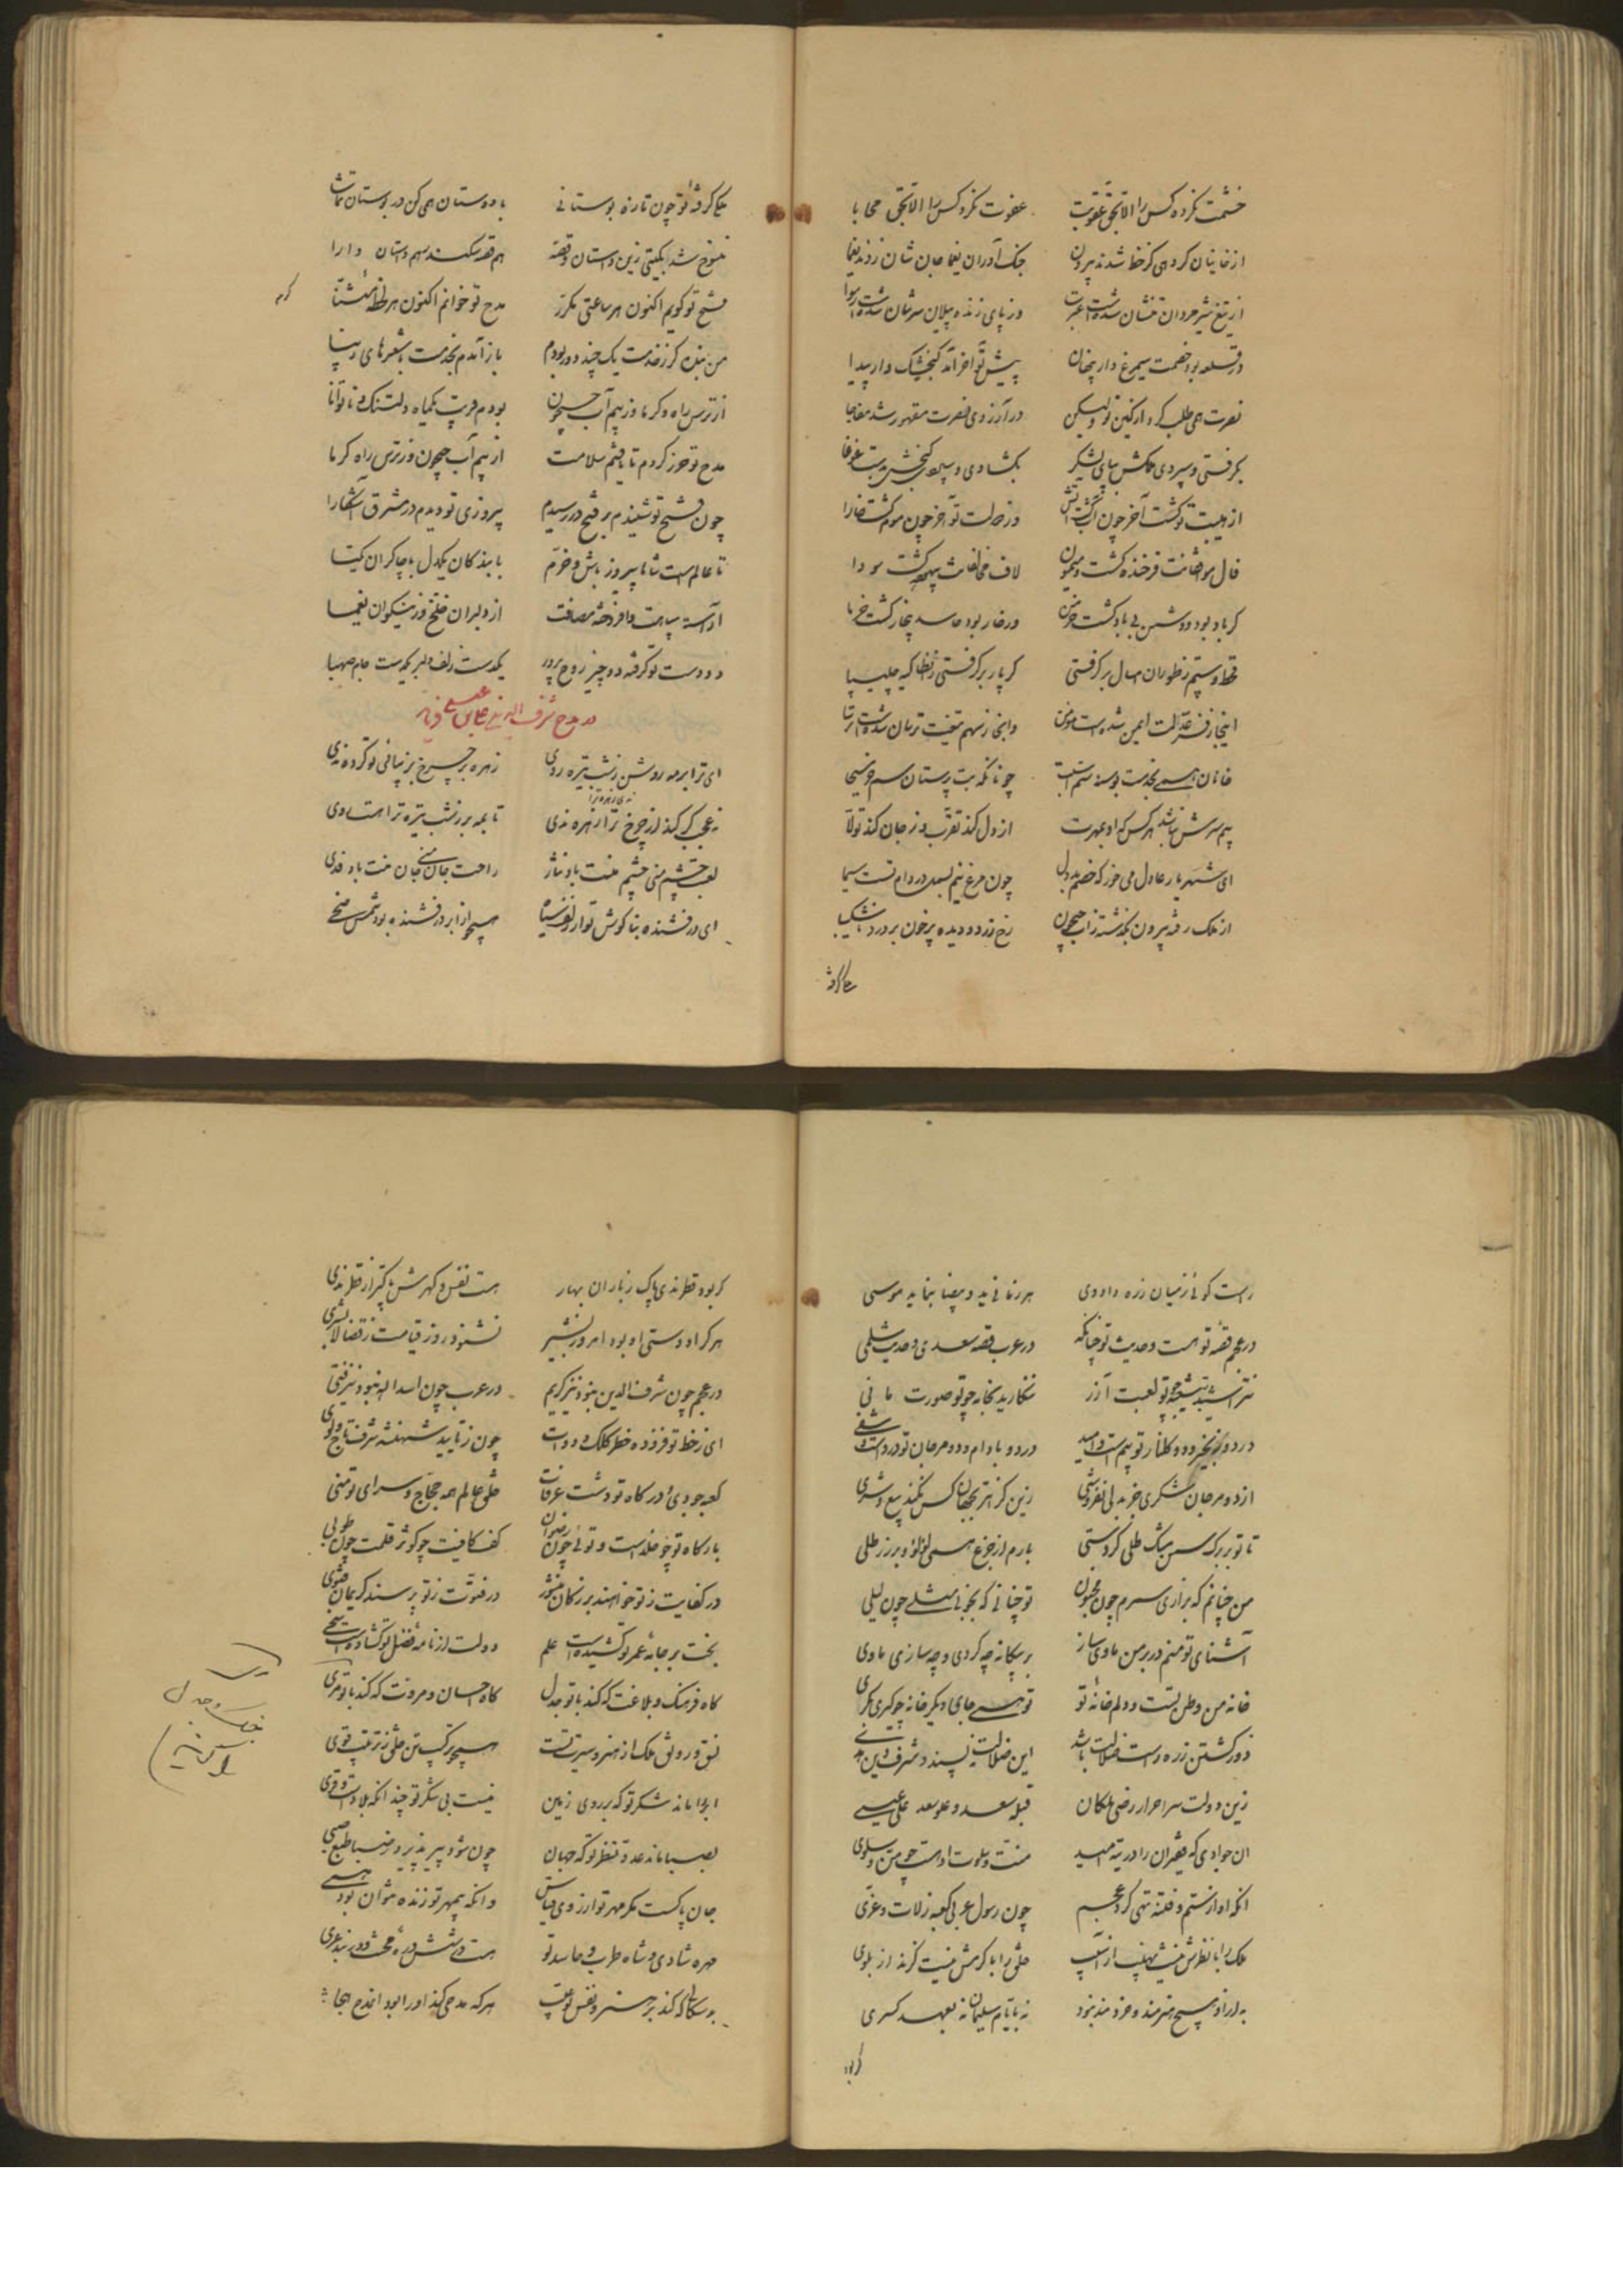 خشمت نکرده کس را الا بحق عقوبت عفوت نکرد کس را الا بحق محابا
از خانیان گروهی کز خط شدند بیرون جنگ آوران یغما جان شان زدند یغما
از تیغ شیر مردان تنشان شده است عبرت در پای زنده پیلان سرشان شده است رسوا
در قلعه بود خصمت سیمرغ وار پنهان پیش تو آخر آمد گنجشک وار پیدا
نصرت همی طلب کرد از کین تو ولیکن در آرزوی نصرت مقهور شد مفاجا
بگرفتی و سپردی ملکش بپای لشکر بگشادی و گنجش بدست غوغا
از هیبت تو گشت آخر چون آب گشت آتش وز دولت تو آخر چون موم گشت خارا
فال موافقانت فرخنده گشت و میمون لاف مخالفانت بیهوده گشت و سودا
گر باد بود دشمن بی باد گشت خرمن ور خار بود حاسد بی خار گشت خرما
قحط و ستم ز طوران امسال بر گرفتی گر پار بر گرفتی ز انطاکیه چلیپا
اینجا ز فر عدلت ایمن شده است مومن وانجا ز سهم تیغت ترسان شده است ترسا
خانان همی بخدمت بوسند سم اسبت چونانکه بت پرستان سم خر مسیحا
بیم سرش نباشد هر کس که او بمهرت از دل کند تقرب وز جان کند تولا
ای شهریار عادل می خور که خصم بد دل چون مرغ نیم بسمل در دام تست سیما
از ملک رفته بیرون بگذشته ز آب جیحون رخ زرد و دیده پر خون بر درد ناشکیبا
بگرفته
بگرفته تو چون تازه بوستانی با دوستان همی کن در بوستان تماشا
منسوخ شد بگیتی زین داستان و قصه هم قصه سکندر هم داستان دارا
فتح تو گویم اکنون هر ساعتی مکرر مدح تو خوانم اکنون هر لحظه مثنا
من بنده گر ز خدمت یک چند دور بودم باز آمدم بخدمت با شعرهای زیبا
از ترس راه و گرما وز بیم آب جیحون بودم قریب یکماه دلتنگ و ناتوانا
مدح تو حرز کردم تا یافتم سلامت از بیم آب جیحون وز ترس راه گرما
چون فتح تو شنیدم بر فتح در رسیدم پیروزی تو دیدم در مشرق آشکارا
تا عالم است شاها پیروز باش و خرم با بندگان یکدل با چاکران یکتا
آراسته سپاهت و افروخته مصافت از دلبران خلخ وز نیکوان یغما
دو دست تو گرفته دو چیز روح پرور یکدست زلف دلبر یکدست جام صهبا
در مدح شرف الدین علی بن عیسی
ای ترا بر مه روشن ز شب تیره ردی زهره بر چرخ بزیبائی تو کرده ندی
نه عجب گر کند از چرخ ترا زهره ندی تا بمه بر ز شب تیره ترا هست ردی
لعبت چشم منی چشم منت باد نثار راحت جان منی جان منت باد فدی
ای درفشنده بناگوش تو از زلف سیاه همچو از ابر درفشنده بود شمس ضحی
راست گوئی ز میان زره داودی هر زمانی ید و بیضا بنماید موسی
در عجم قصه تو هست و حدیث تو چنانکه در عرب قصه سعدی و حدیث سلمی
نتراشید بتیشه چو تو لعبت آزر ننگارید بخامه چو تو صورت مانی
در دو زنجیر و دو گلنار تو بیم است و امید در دو بادام و دو مرجان تو درد است و شفی
از دو مرجان شکری خر بدلی نفروشی زین گرانتر بجهان کس نکند بیع و شری
تا تو بر برگ سمن مشک طلی کردستی بارم از جزع همی لؤلؤ و بر زر طلی
من چنانم که بزاری سمرم چون مجنون تو چنانی که بخوبی مثلی چون لیلی
آشنای تو منم در بر من ماوی ساز بر بیگانه چه گردی و چه سازی ماوی
خانه من وطن تست و دلم خانه تو تو همی جای دیگر خانه چو گیری بکری
زین دولت سر احرار رضی ملکان قبله سعد و علو سعد علی عیسی
آن جوادی که فقیران را در تیه امید منت و سلوت او هست چو من و سلوی
آنکه او از ستم و فتنه تهی کرد عجم چون رسول عربی کعبه ز لات و عزی
ملک را با نظرش نیست نهیب از آسیب خلق را با کرمش نیست گزند از بلوی
به از او هیچ هنرمند و خردمند نبود نه بایام سلیمان نه بعهد کسری
گر بود
گر بود قطر ندی پاک ز باران بهار هست نفس و گهرش پاکتر از قطر ندی
هر کرا دوستی او بود امروز بشیر نشنود روز قیامت ز قضا لا بشری
در عجم چون شرف الدین نبود نیز کریم در عرب چون اسد الله نبود نیز فتی
ای ز خط تو فزوده خطر کلک و دوات چون ز تایید شهنشه شرف تاج و لوی
کعبه جودی و درگاه تو دشت عرفات خلق عالم همه حجاج و سرای تو منی
بارگاه تو چو خلد است و توئی چون رضوان کف کافیت چو کوثر قلمت چون طوبی
در کفایت ز تو خواهند بزرگان منشور در فتوت ز تو پرسند کریمان فتوی
بخت بر جامه عمر تو کشیده است علم دولت از نامه فضل تو گشاده است سحی
گاه فرهنگ و بلاغت که کند با تو جدل گاه احسان و مروت که کند با تو مری
نسق و رونق ملک از هنر و سیرت تست همچو ترکیب تن خلق ز ترتیب قوی
ابر را ماند شکر تو که بر روی زمین نیست بی شکر تو چندانکه بلاد است و قری
بصبا ماند عدل و نظر تو که جهان چون شود پیر پذیرد ز صبا طبع صبی
جان پاکست مگر مهر تو از روی قیاس وانکه بیمهر تو زنده متوان بود همی
هر که مدحی کند او را بود اندم هجا